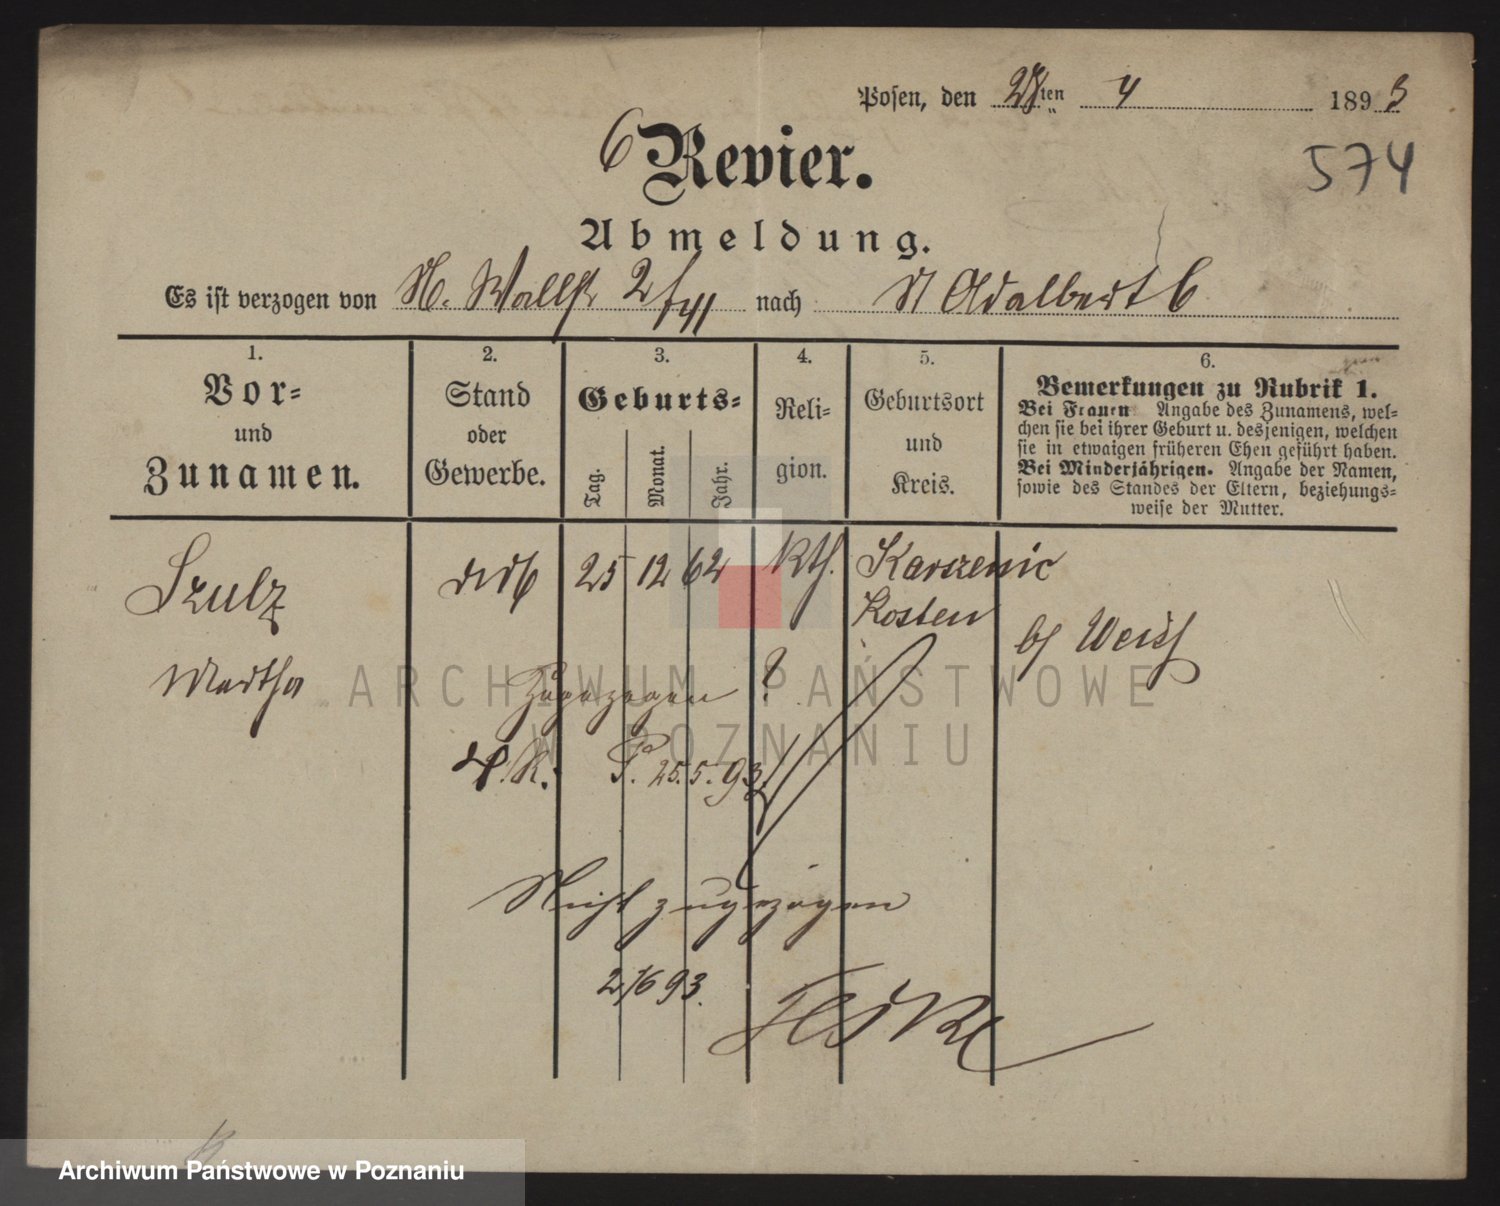 Posen, den 28ten 4 1893
6 Revier.
574
Abmeldung.
Es ist verzogen von N. Wallstr 2/741 nach St Adalbert 6
1. 2. 3. 4. 5. 6.
Vor- und Zunamen.
Stand oder Gewerbe.
Geburts-
Tag. Monat. Jahr.
Reli-
gion.
Geburtsort
und
Kreis.
Bemerkungen zu Rubrik 1.
Bei Frauen Angabe des Zunamens, wel-
chen sie bei ihrer Geburt u. desjenigen, welchen
sie in etwaigen früheren Ehen geführt haben.
Bei Minderjährigen. Angabe der Namen,
sowie des Standes der Eltern, beziehungs-
weise der Mutter.
Szulz 25 12 62 Kth. Karszenic
Kosten
Martha
Zugezogen ?
P. 25.5.93
Nicht zugezogen
2/6 93.
ARCHIWUM PAŃSTWOWE
W POZNANIU
Archiwum Państwowe w Poznaniu